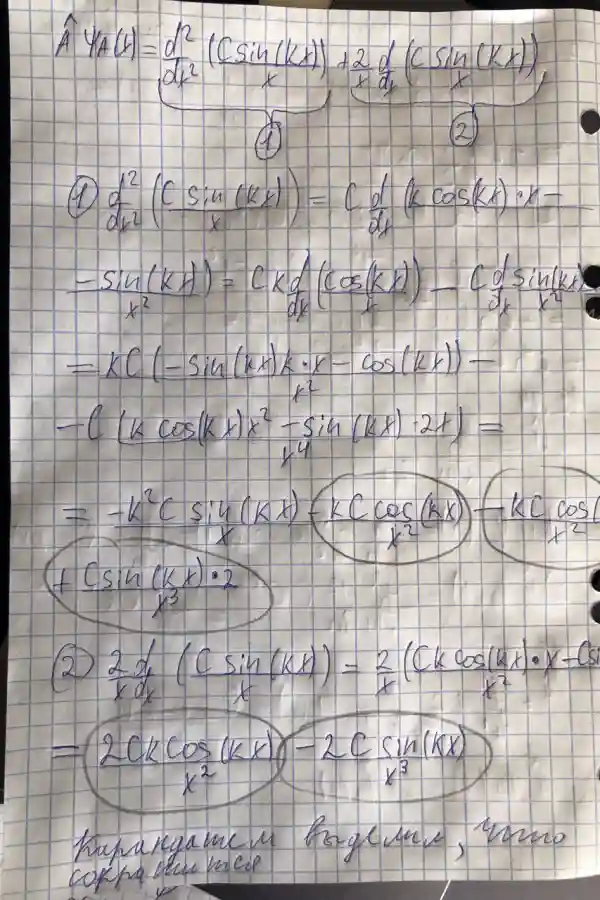 Â ψA(x) = d²/dx² (C sin(kx)/x) + 2/x d/dx (C sin(kx)/x)
① ②
① d²/dx² (C sin(kx)/x) = C d/dx (k cos(kx)·x −
− sin(kx)/x²) = Ck d/dx (cos(kx)/x) − C d/dx sin(kx)/x²
= kC (−sin(kx)k·x − cos(kx)/x²) −
− C (k cos(kx)x² − sin(kx)·2x/x⁴) =
= −k²C sin(kx)/x − kC cos(kx)/x² − kC cos(/x²
+ C sin(kx)·2/x³
② 2/x d/dx (C sin(kx)/x) = 2/x (Ck cos(kx)·x − Csi/x²
= 2Ck cos(kx)/x² − 2C sin(kx)/x³
Карандашом выделим, что
сократится